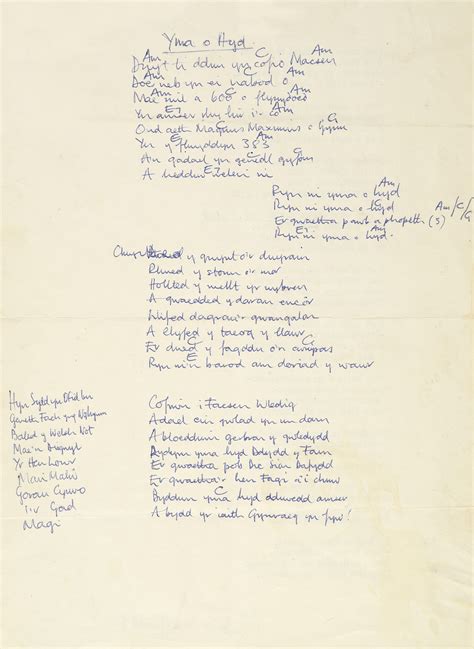 Yma o Hyd
Am C Am
Dwyt ti ddim yn cofio Macsen
Am
Does neb yn ei nabod o
Am C Am
Mae mil a 600 o flynyddoedd
E7
Yn amser rhy hir i'r co
C G
Ond aeth Magnus Maximus o Gymru
Am
Yn y flwyddyn 383
C G
A'n gadael yn genedl gyfan
E7
A heddiw wele ni
Am
Ryn ni yma o hyd
Ryn ni yma o hyd Am/C/G
Er gwaetha pawb a phopeth (3)
E7 Am
Ryn ni yma o hyd.
Chwythed y gwynt o'r dwyrain
Rhued y storm o'r mor
Hollted y mellt yr wybren
A gwaedded y daran encôr
Llifed dagrau'r gwangalon
A llyfed y taeog y llawr
C G
Er dued y fagddu o'n cwmpas
E
Ryn ni'n barod am doriad y wawr
Cofiwn i Facsen Wledig
Adael ein gwlad yn un darn
A bloeddiwn gerbron y gwledydd
Byddwn yma hyd Ddydd y Farn
Er gwaetha pob Dic Siôn Dafydd
Er gwaetha'r hen Fagi a'i chriw
C
Byddwn yma hyd ddiwedd amser
A bydd yr iaith Gymraeg yn fyw!
Geneth Fach yng Nghymru
Balad y Welsh Not
Mae'n Disgwyl
Yr Hen Lowr
Mari Malŵ
I'r Gad
Magi